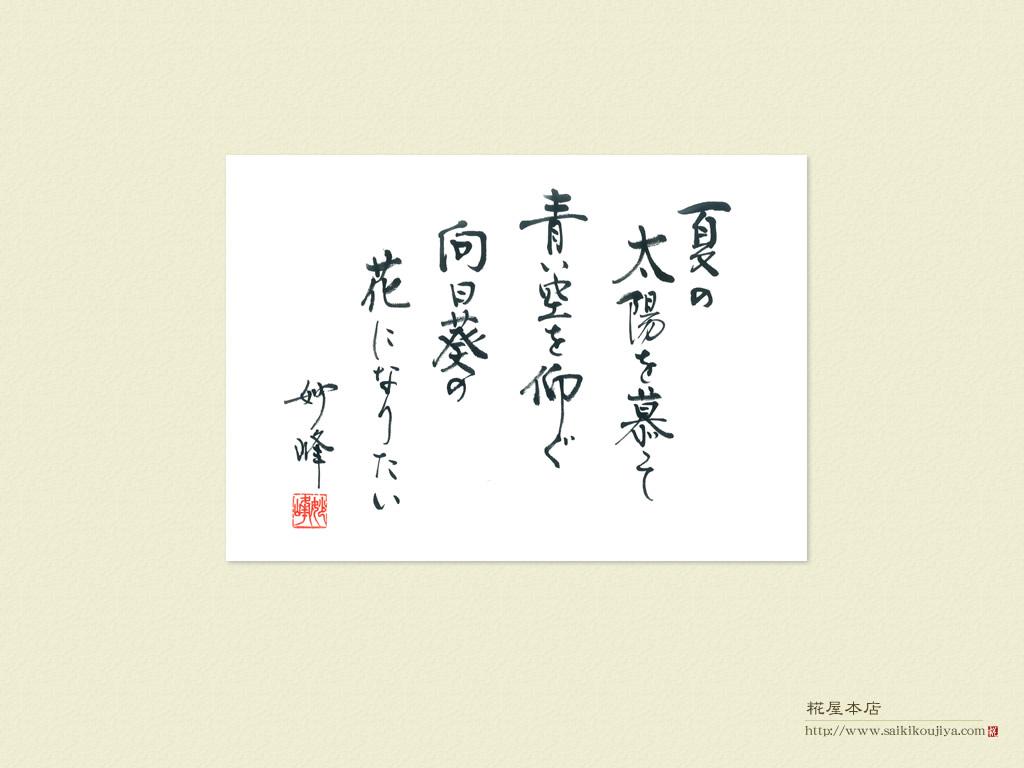 夏の
太陽を慕って
青い空を仰ぐ
向日葵の
花になりたい
妙峰
妙峰
糀屋本店
http://www.saikikoujiya.com
糀